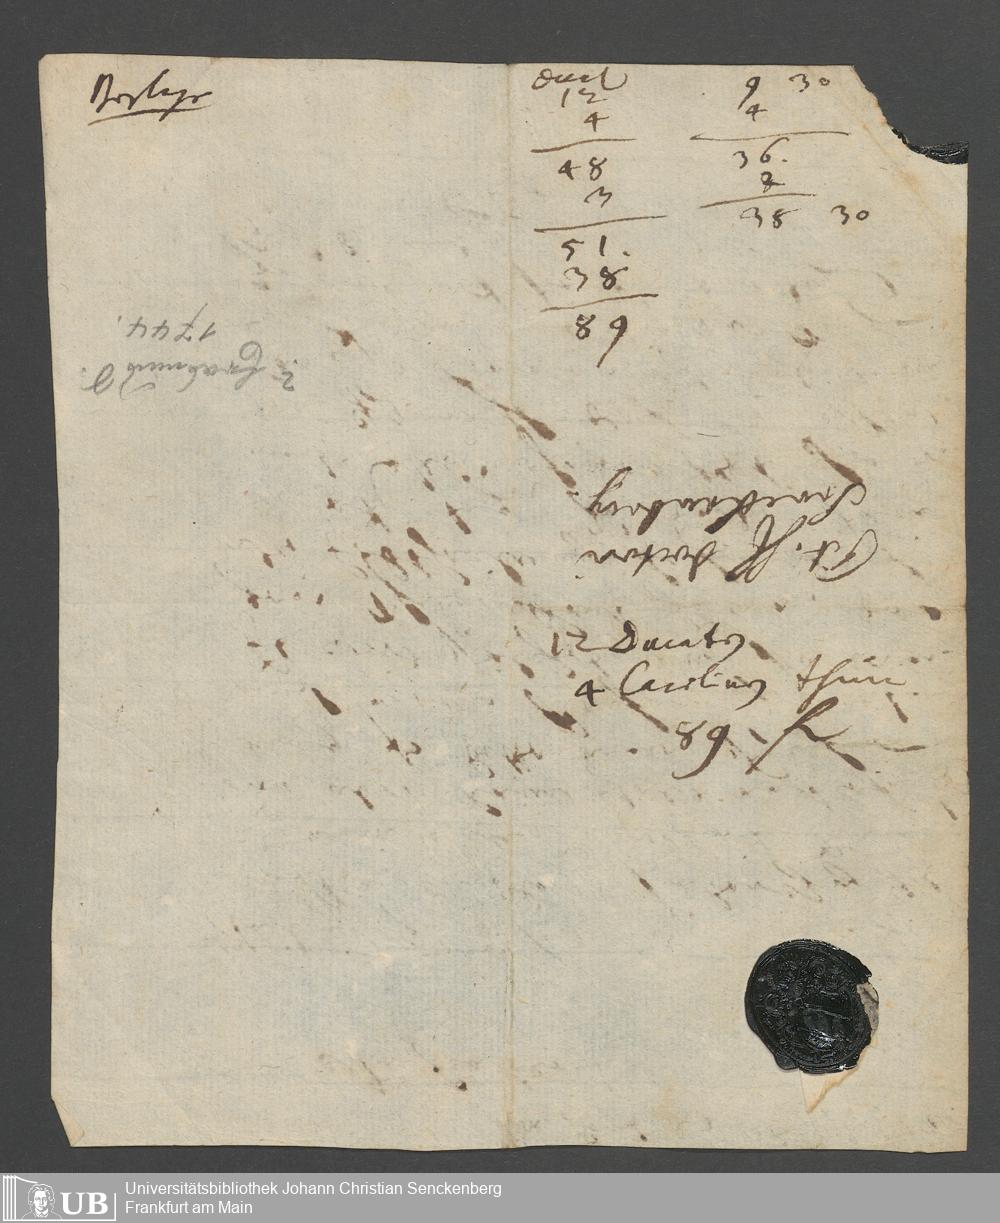 Ducat
12
4
48
3
51.
38
89
9 30
4
36.
2
38 30
1744.
Senckenberg.
H doctori
12 Ducaten
4 Carolinen thun
89
UB
Universitätsbibliothek Johann Christian Senckenberg
Frankfurt am Main